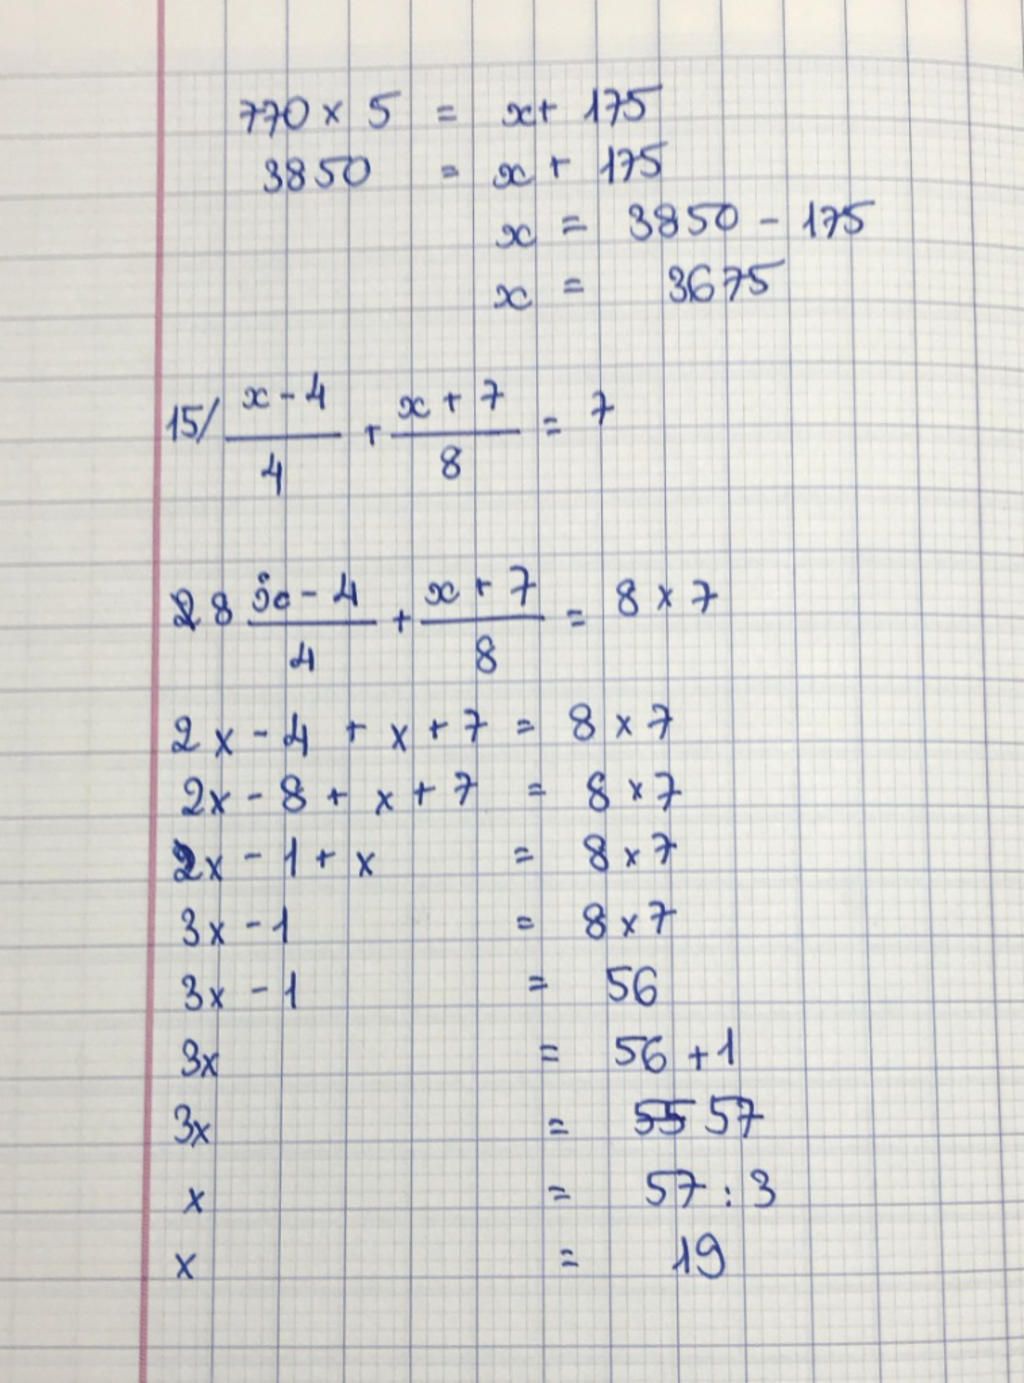 770 × 5 = x + 175
3850 = x + 175
x = 3850 - 175
x = 3675
15/ (x - 4)/4 + (x + 7)/8 = 7
8 (x - 4)/4 + (x + 7)/8 = 8 × 7
2x - 4 + x + 7 = 8 × 7
2x - 8 + x + 7 = 8 × 7
2x - 1 + x = 8 × 7
3x - 1 = 8 × 7
3x - 1 = 56
3x = 56 + 1
3x = 55 57
x = 57 : 3
x = 19